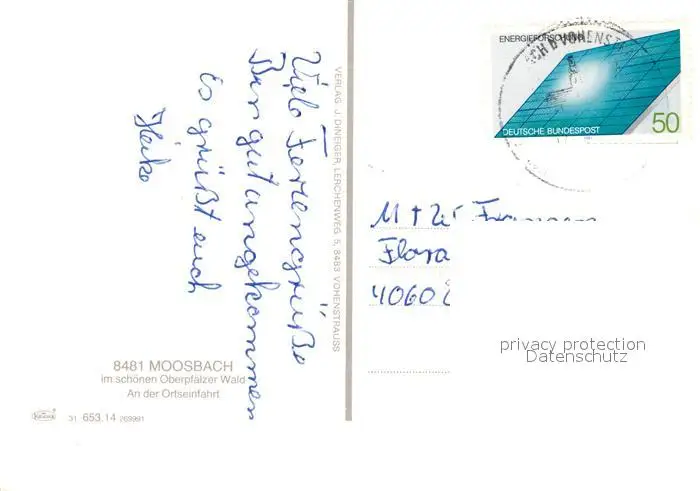 Viele Feriengrüße
Bin gut angekommen
Es grüßt euch
Heike
VERLAG J. DINERGER, LERCHENWEG 5, 8483 VOHENSTRAUSS
8481 MOOSBACH
im schönen Oberpfälzer Wald
An der Ortseinfahrt
31 653.14 269981
ENERGIEFORSCHUNG
DEUTSCHE BUNDESPOST
50
CH b VOHENSTR
M +
Flora
4060
privacy protection
Datenschutz